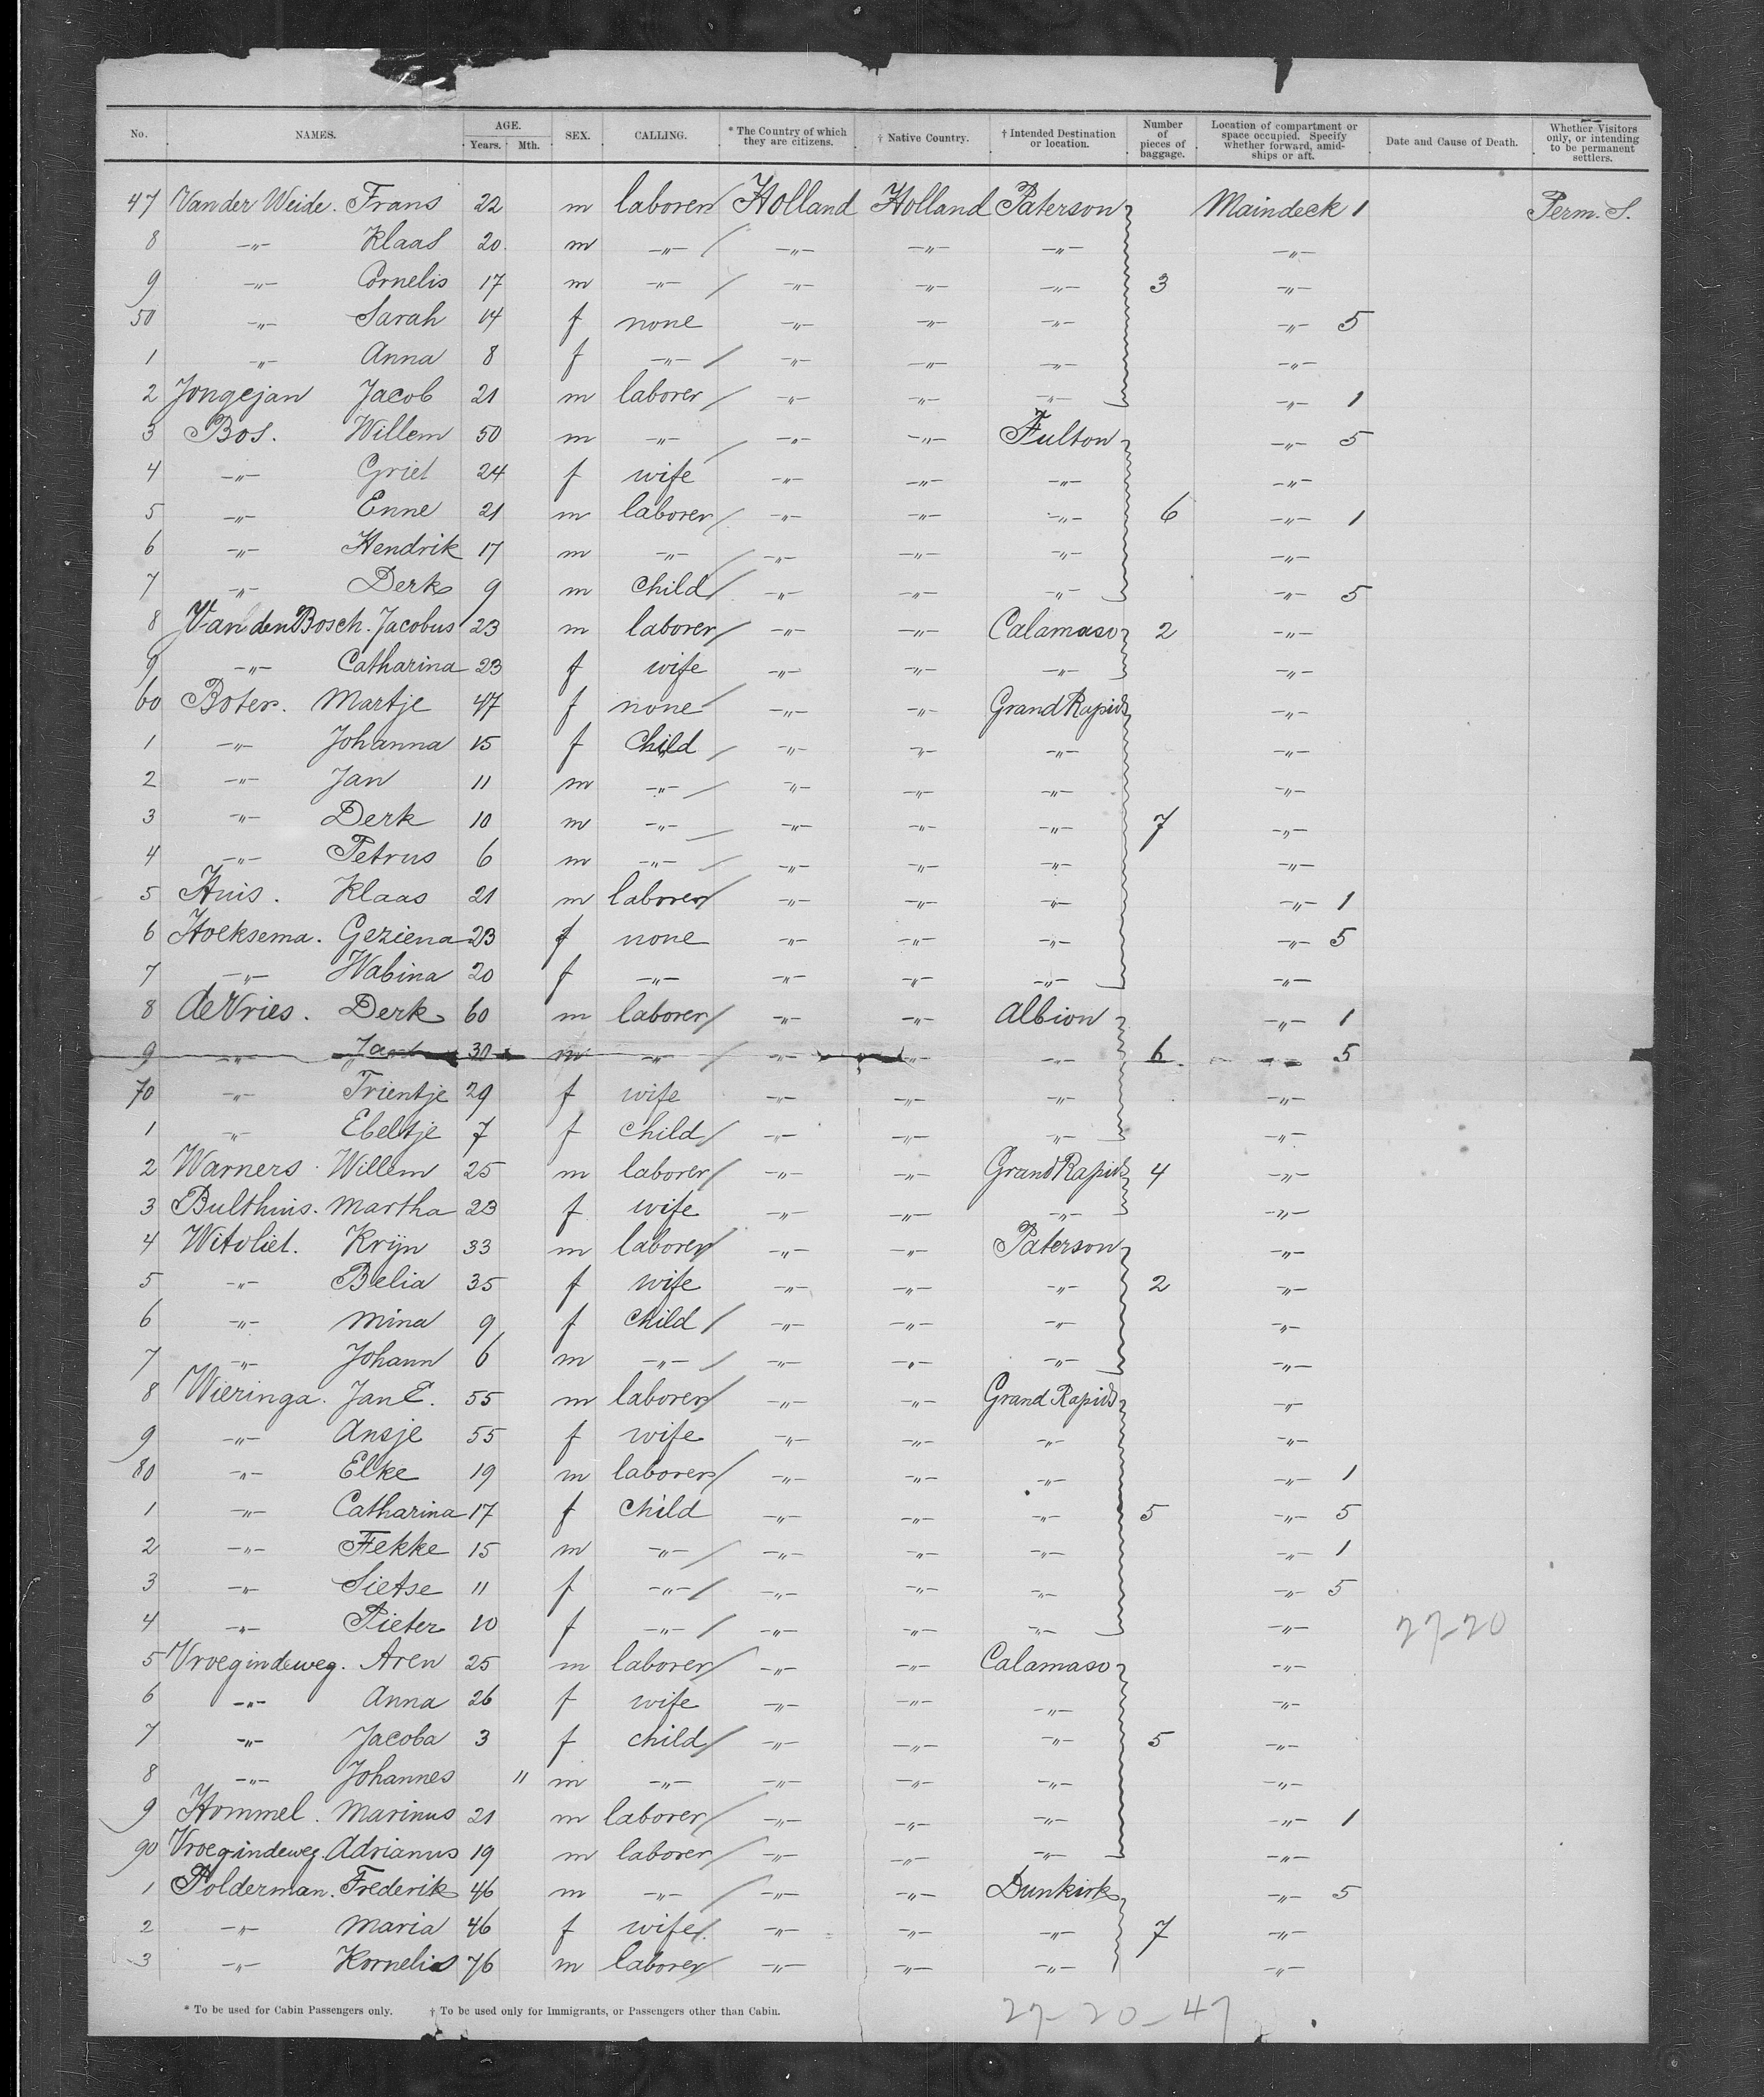 No. NAMES. AGE. Years. Mth. SEX. CALLING. * The Country of which they are citizens. † Native Country. † Intended Destination or location. Number of pieces of baggage. Location of compartment or space occupied. Specify whether forward, amidships or aft. Date and Cause of Death. Whether Visitors only, or intending to be permanent settlers.
47 Van der Weide. Frans 22 m laborer Holland Holland Paterson Maindeck 1 Perm. S.
8 -"- Klaas 20. m -"- -"- -"- -"- -"-
9 -"- Cornelis 17 m -"- -"- -"- -"- 3 -"-
50 -"- Sarah 14 f none -"- -"- -"- -"- 5
1 -"- Anna 8 f -"- -"- -"- -"- -"-
2 Jongejan Jacob 21 m laborer -"- -"- -"- -"- 1
3 Bos. Willem 50 m -"- -"- -"- Fulton -"- 5
4 -"- Griet 24 f wife -"- -"- -"- -"-
5 -"- Enne 21 m laborer -"- -"- -"- 6 -"- 1
6 -"- Hendrik 17 m -"- -"- -"- -"- -"-
7 -"- Derk 9 m child -"- -"- -"- -"- 5
8 Van den Bosch. Jacobus 23 m laborer -"- -"- Calamaso 2 -"-
9 -"- Catharina 23 f wife -"- -"- -"- -"-
60 Boter. Martje 47 f none -"- -"- Grand Rapids -"-
1 -"- Johanna 15 f child -"- -"- -"- -"-
2 -"- Jan 11 m -"- -"- -"- -"- -"-
3 -"- Derk 10 m -"- -"- -"- -"- 7 -"-
4 -"- Petrus 6 m -"- -"- -"- -"- -"-
5 Huis. Klaas 21 m laborer -"- -"- -"- -"- 1
6 Hoeksema. Geziena 23 f none -"- -"- -"- -"- 5
7 -"- Wabina 20 f -"- -"- -"- -"- -"-
8 de Vries. Derk 60 m laborer -"- -"- Albion -"- 1
9 -"- Jan 30 m -"- -"- -"- -"- 6 5
70 -"- Trientje 29 f wife -"- -"- -"- -"-
1 -"- Ebeltje 7 f child -"- -"- -"- -"-
2 Warners. Willem 25 m laborer -"- -"- Grand Rapids 4 -"-
3 Bulthuis. Martha 23 f wife -"- -"- -"- -"-
4 Witvliet. Krijn 33 m laborer -"- -"- Paterson -"-
5 -"- Belia 35 f wife -"- -"- -"- 2 -"-
6 -"- Mina 9 f child -"- -"- -"- -"-
7 -"- Johann 6 m -"- -"- -"- -"- -"-
8 Wieringa. Jan E. 55 m laborer -"- -"- Grand Rapids -"-
9 -"- Ansje 55 f wife -"- -"- -"- -"-
80 -"- Elke 19 m laborer -"- -"- -"- -"- 1
1 -"- Catharina 17 f child -"- -"- -"- 5 -"- 5
2 -"- Fekke 15 m -"- -"- -"- -"- -"- 1
3 -"- Sietse 11 f -"- -"- -"- -"- -"- 5
4 -"- Pieter 10 f -"- -"- -"- -"- -"- 27-20
5 Vroegindeweg. Aren 25 m laborer -"- -"- Calamaso -"-
6 -"- Anna 26 f wife -"- -"- -"- -"-
7 -"- Jacoba 3 f child -"- -"- -"- 5 -"-
8 -"- Johannes 11 m -"- -"- -"- -"- -"-
9 Hommel. Marinus 21 m laborer -"- -"- -"- -"- 1
90 Vroegindeweg. Adrianus 19 m laborer -"- -"- -"- -"-
1 Polderman. Frederik 46 m -"- -"- -"- Dunkirk -"- 5
2 -"- Maria 46 f wife -"- -"- -"- 7 -"-
3 -"- Kornelis 76 m laborer -"- -"- -"- -"-
* To be used for Cabin Passengers only. † To be used only for Immigrants, or Passengers other than Cabin.
27-20-47